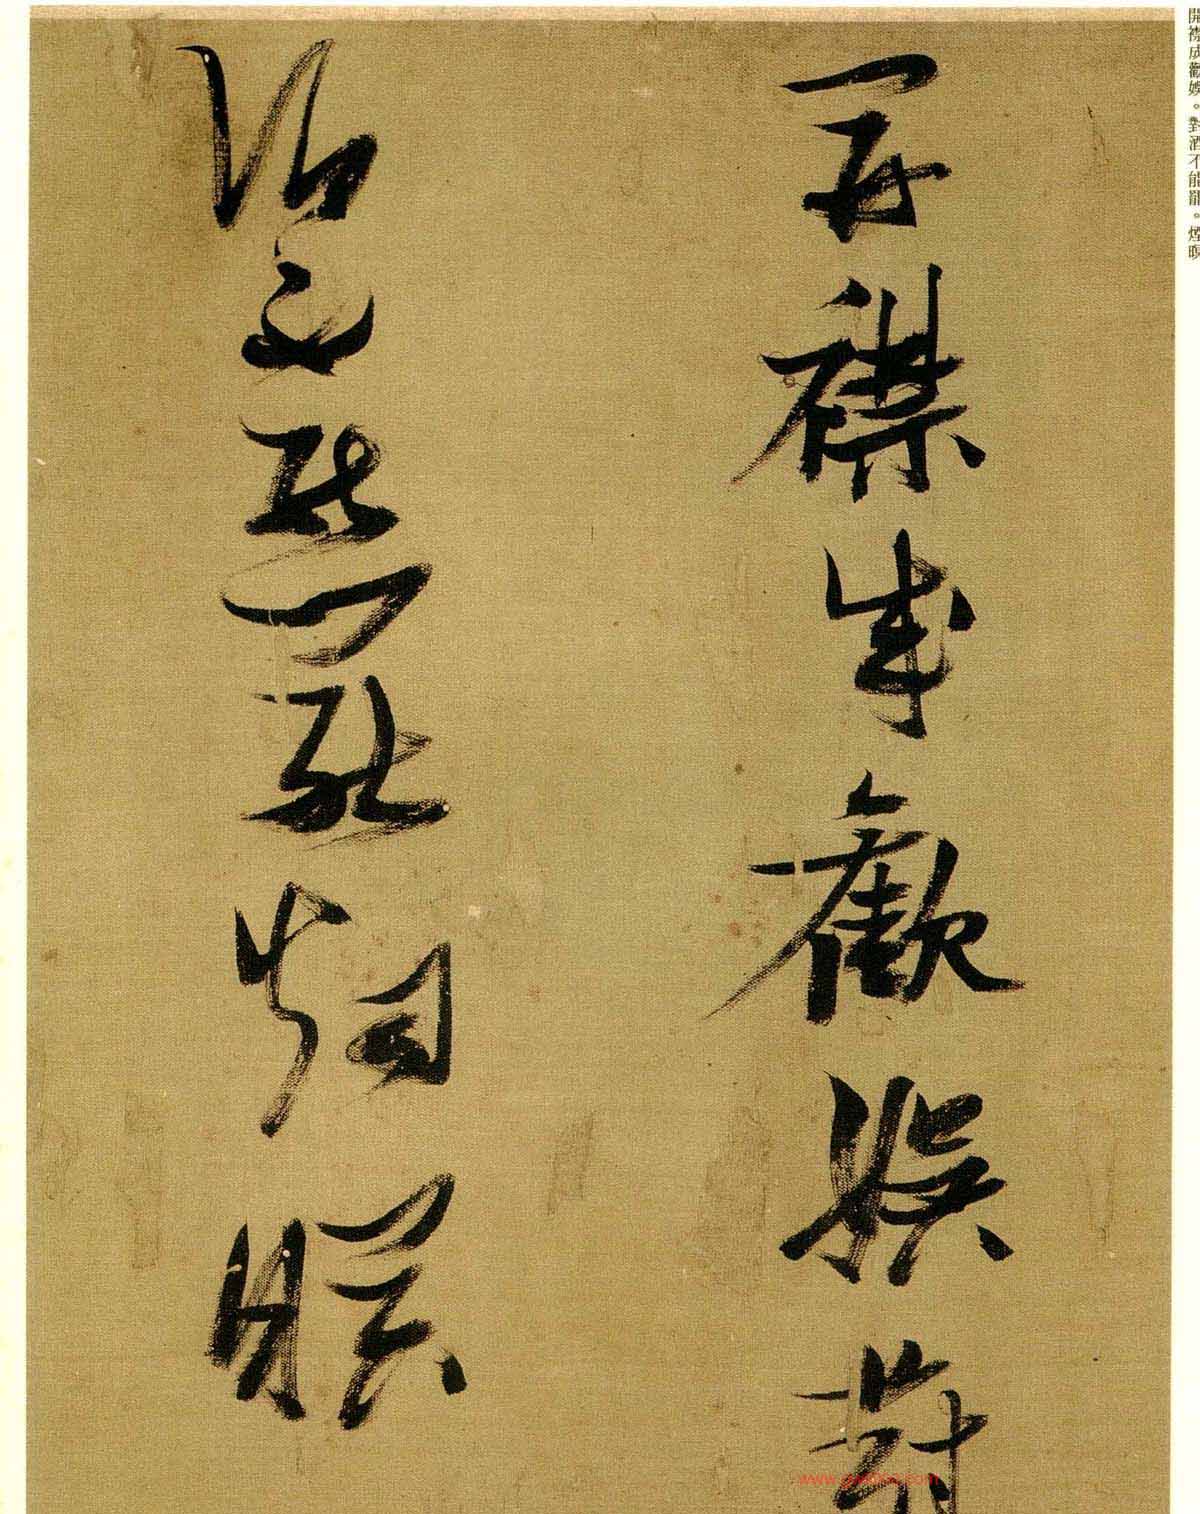 開襟成歡娛。對酒不能罷。煙暝
開襟成歡娛對
酒不能罷煙暝